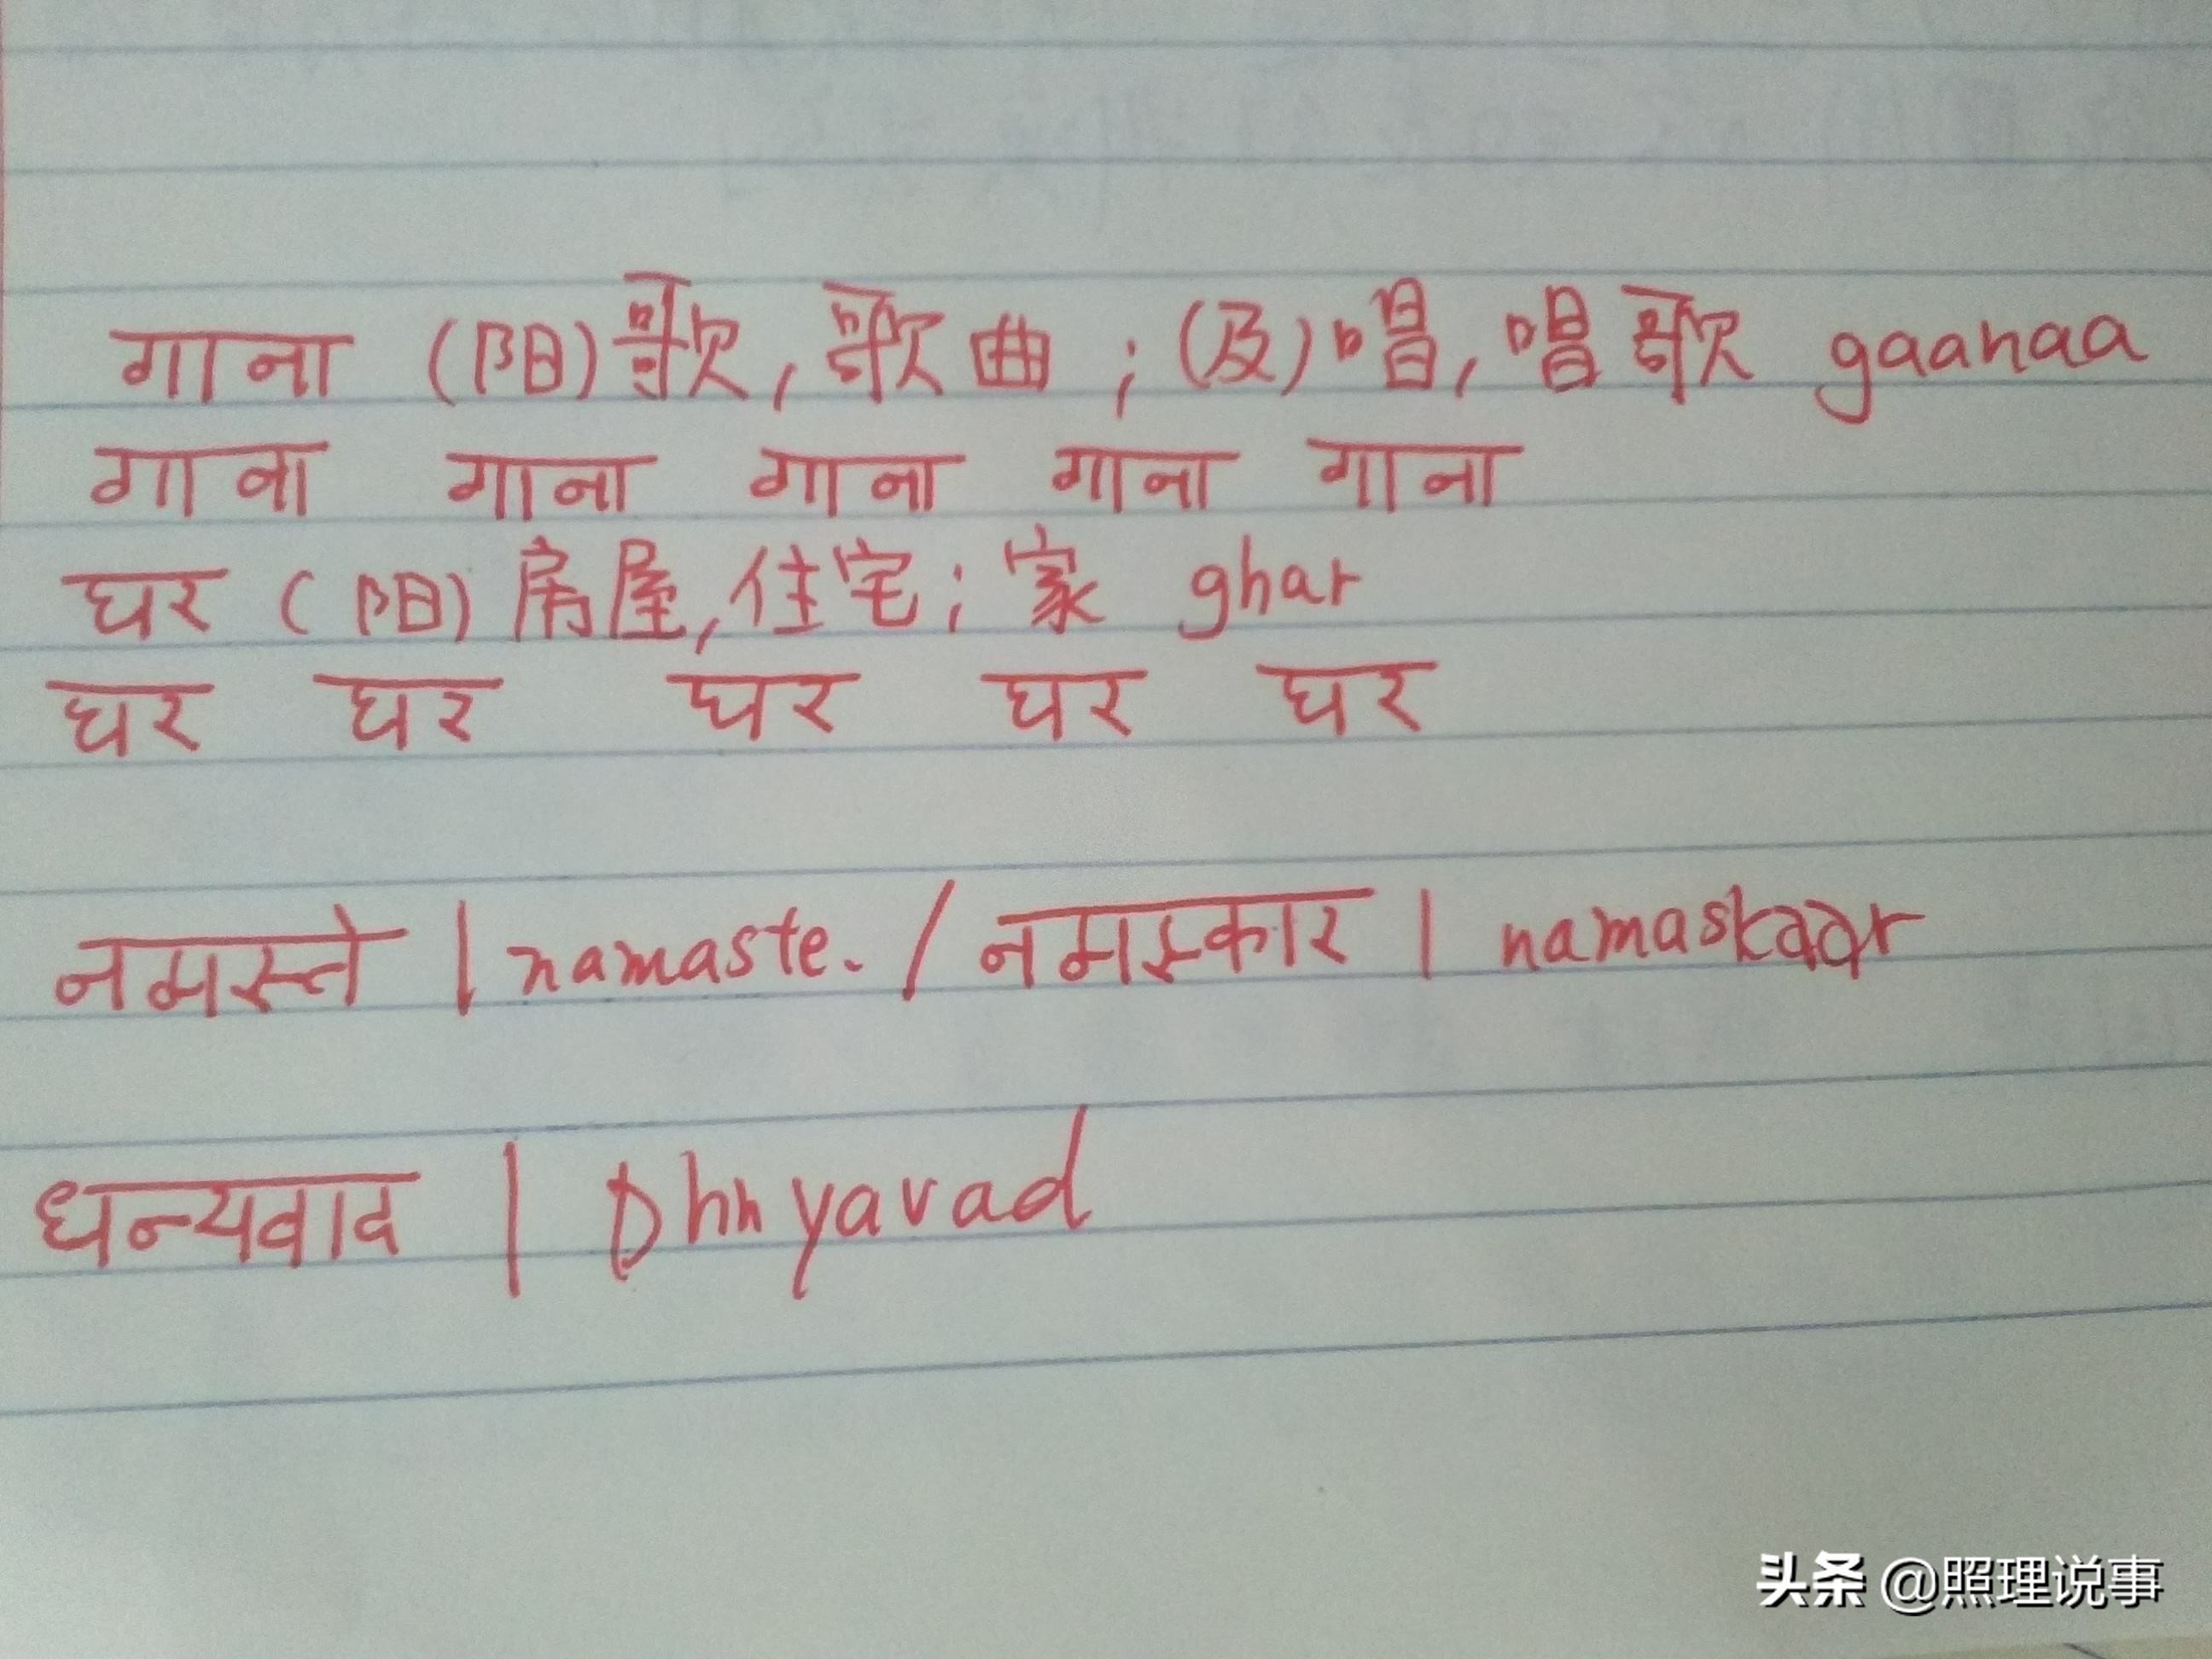 गाना (阳)歌,歌曲;(及)唱,唱歌 gaanaa
गाना गाना गाना गाना गाना
घर (阳)房屋,住宅;家 ghar
घर घर घर घर घर
नमस्ते | namaste. / नमस्कार | namaskaar
धन्यवाद | Dhnyavad
头条 @照理说事